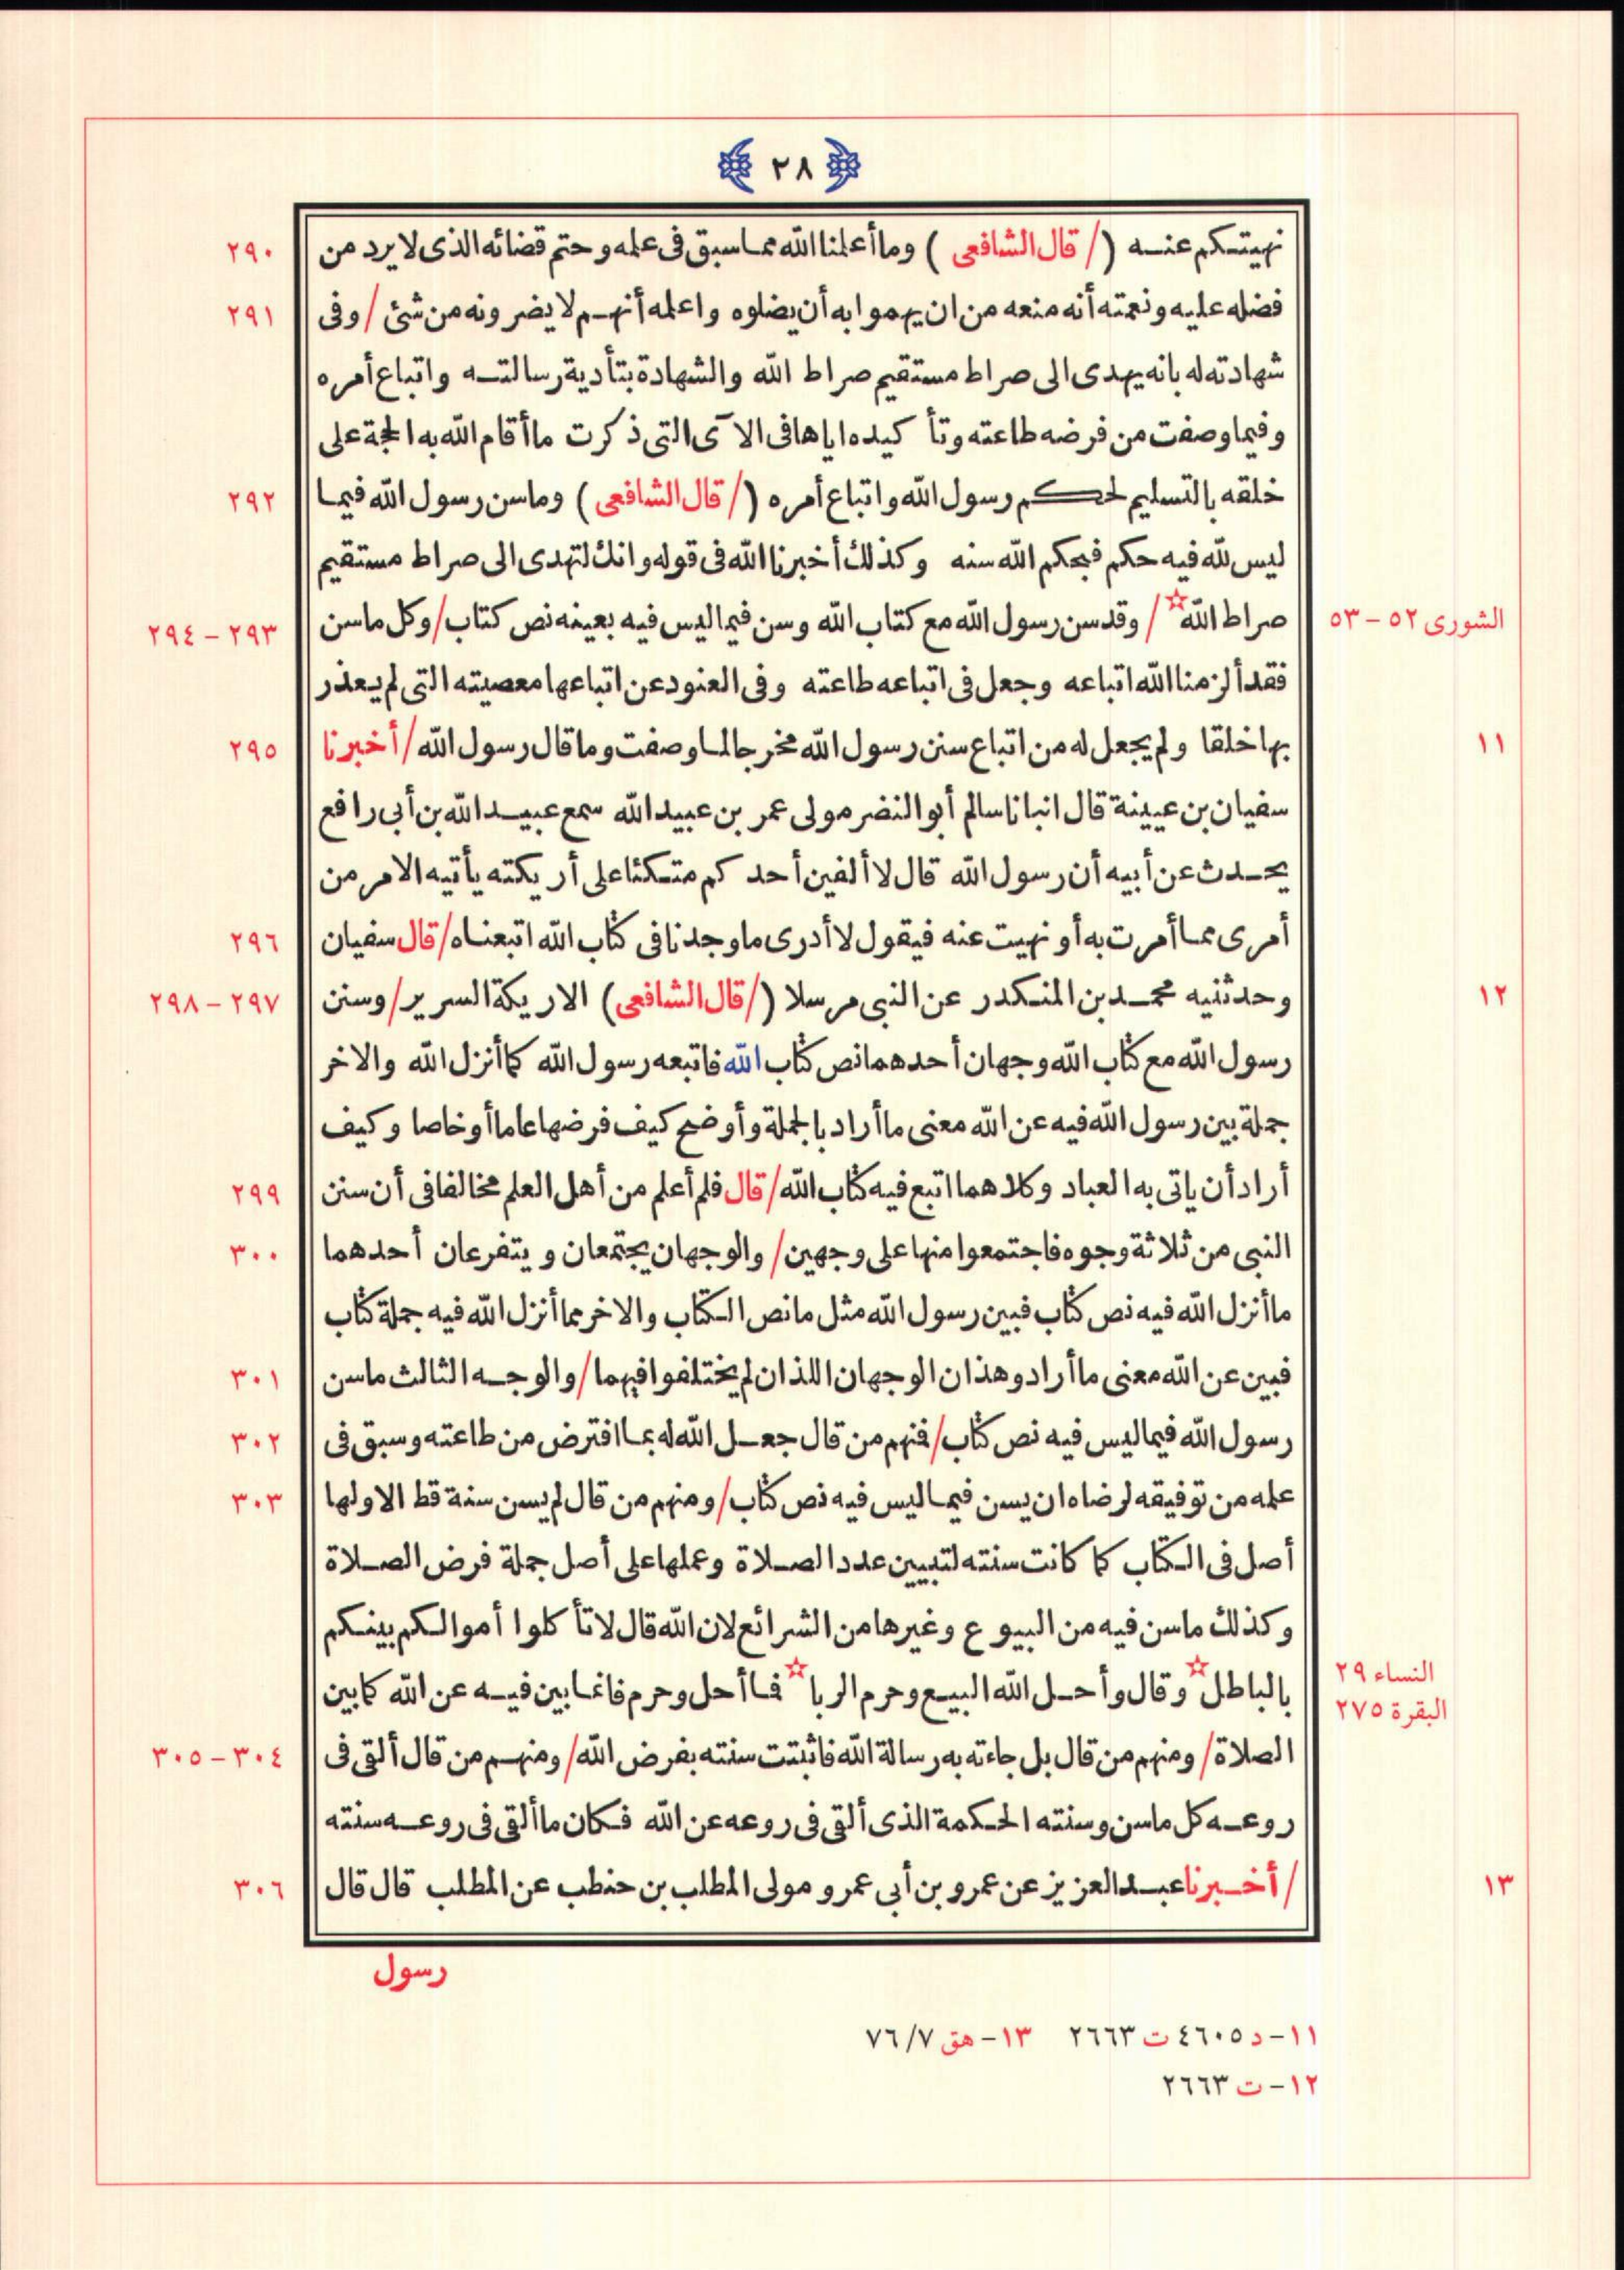 ٢٨
نهيتكم عنه (/ قال الشافعى ) وما أعلمنا الله مما سبق فى علمه وحتم قضائه الذى لا يرد من ٢٩٠
فضله عليه ونعمته أنه منعه من ان يهموا به أن يضلوه واعلمه أنهم لا يضرونه من شئ / وفى ٢٩١
شهادته له بانه يهدى الى صراط مستقيم صراط الله والشهادة بتأدية رسالته واتباع أمره
وفيما وصفت من فرضه طاعته وتأكيده اياها فى الآى التى ذكرت ما أقام الله به الحجة على
خلقه بالتسليم لحكم رسول الله واتباع أمره (/ قال الشافعى ) وما سن رسول الله فيما ٢٩٢
ليس لله فيه حكم فبحكم الله سنه وكذلك أخبرنا الله فى قوله وانك لتهدى الى صراط مستقيم
الشورى ٥٢ - ٥٣ صراط الله☆ / وقد سن رسول الله مع كتاب الله وسن فيما ليس فيه بعينه نص كتاب / وكل ما سن ٢٩٣ - ٢٩٤
فقد ألزمنا الله اتباعه وجعل فى اتباعه طاعته وفى العنود عن اتباعها معصيته التى لم يعذر
١١ بها خلقا ولم يجعل له من اتباع سنن رسول الله مخرجا لما وصفت وما قال رسول الله / أخبرنا ٢٩٥
سفيان بن عيينة قال انبانا سالم أبو النضر مولى عمر بن عبيد الله سمع عبيد الله بن أبى رافع
يحدث عن أبيه أن رسول الله قال لا ألفين أحدكم متكئا على أريكته يأتيه الامر من
أمرى مما أمرت به أو نهيت عنه فيقول لا أدرى ما وجدنا فى كتاب الله اتبعناه / قال سفيان ٢٩٦
١٢ وحدثنيه محمد بن المنكدر عن النبى مرسلا (/ قال الشافعى) الاريكة السرير / وسنن ٢٩٧ - ٢٩٨
رسول الله مع كتاب الله وجهان أحدهما نص كتاب الله فاتبعه رسول الله كما أنزل الله والاخر
جملة بين رسول الله فيه عن الله معنى ما أراد بالجملة وأوضح كيف فرضها عاما أو خاصا وكيف
أراد أن ياتى به العباد وكلاهما اتبع فيه كتاب الله / قال فلم أعلم من أهل العلم مخالفا فى أن سنن ٢٩٩
النبى من ثلاثة وجوه فاجتمعوا منها على وجهين / والوجهان يجتمعان ويتفرعان أحدهما ٣٠٠
ما أنزل الله فيه نص كتاب فبين رسول الله مثل ما نص الكتاب والاخر مما أنزل الله فيه جملة كتاب
فبين عن الله معنى ما أراد وهذان الوجهان اللذان لم يختلفوا فيهما / والوجه الثالث ما سن ٣٠١
رسول الله فيما ليس فيه نص كتاب / فمنهم من قال جعل الله له بما افترض من طاعته وسبق فى ٣٠٢
علمه من توفيقه لرضاه ان يسن فيما ليس فيه نص كتاب / ومنهم من قال لم يسن سنة قط الا ولها ٣٠٣
أصل فى الكتاب كما كانت سنته لتبيين عدد الصلاة وعملها على أصل جملة فرض الصلاة
وكذلك ما سن فيه من البيوع وغيرها من الشرائع لان الله قال لا تأكلوا أموالكم بينكم
النساء ٢٩ بالباطل☆ وقال وأحل الله البيع وحرم الربا☆ فما أحل وحرم فانما بين فيه عن الله كما بين
البقرة ٢٧٥
الصلاة / ومنهم من قال بل جاءته به رسالة الله فاثبتت سنته بفرض الله / ومنهم من قال ألقى فى ٣٠٤ - ٣٠٥
روعه كل ما سن وسنته الحكمة الذى ألقى فى روعه عن الله فكان ما ألقى فى روعه سنته
١٣ / أخبرنا عبد العزيز عن عمرو بن أبى عمرو مولى المطلب بن حنطب عن المطلب قال قال ٣٠٦
رسول
١١- د ٤٦٠٥ ت ٢٦٦٣ ١٣- هق ٧/٧٦
١٢- ت ٢٦٦٣